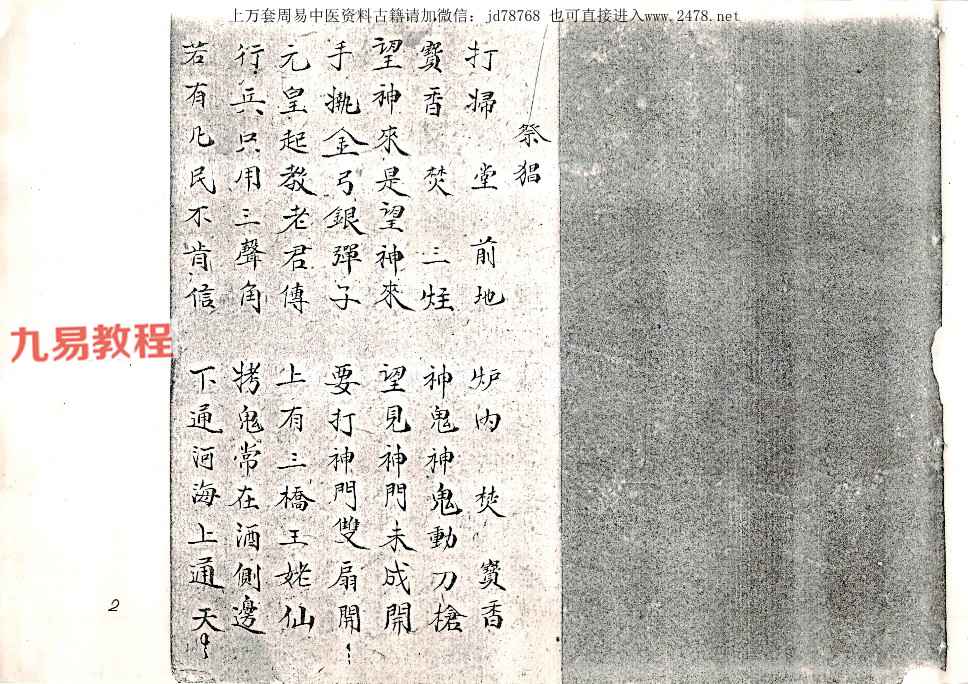 上万套周易中医资料古籍请加微信：jd78768 也可直接进入www.2478.net
祭猖
打掃堂前地 炉内焚寳香
寳香焚三炷 神鬼神鬼動刀槍
望神來是望神來 望見神門未成開
手挑金弓銀彈子 要打神門雙扇開
元皇起教老君傳 上有三橋王姥仙
行兵只用三聲角 拷鬼常在酒側邊
若有凡民不肯信 下通河海上通天
九易教程
2